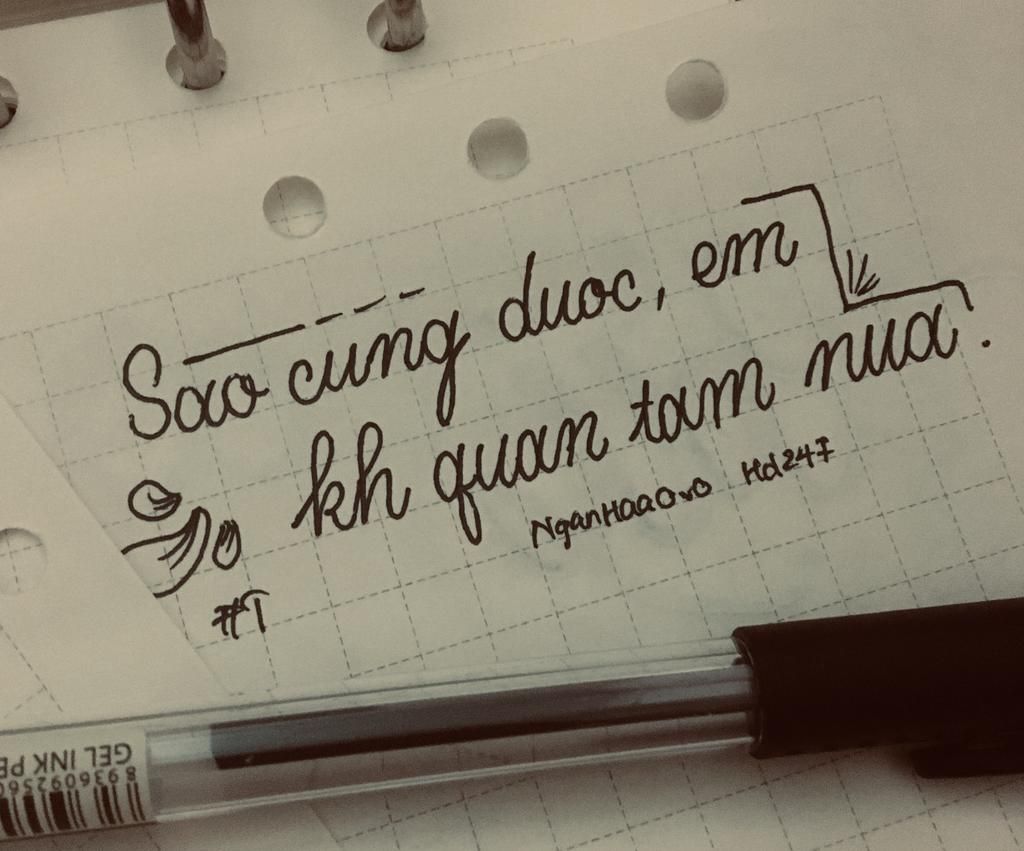 Sao cung duoc, em
kh quan tam nua.
NganHaaOvO Hd247
#T
GEL INK PE
893609256